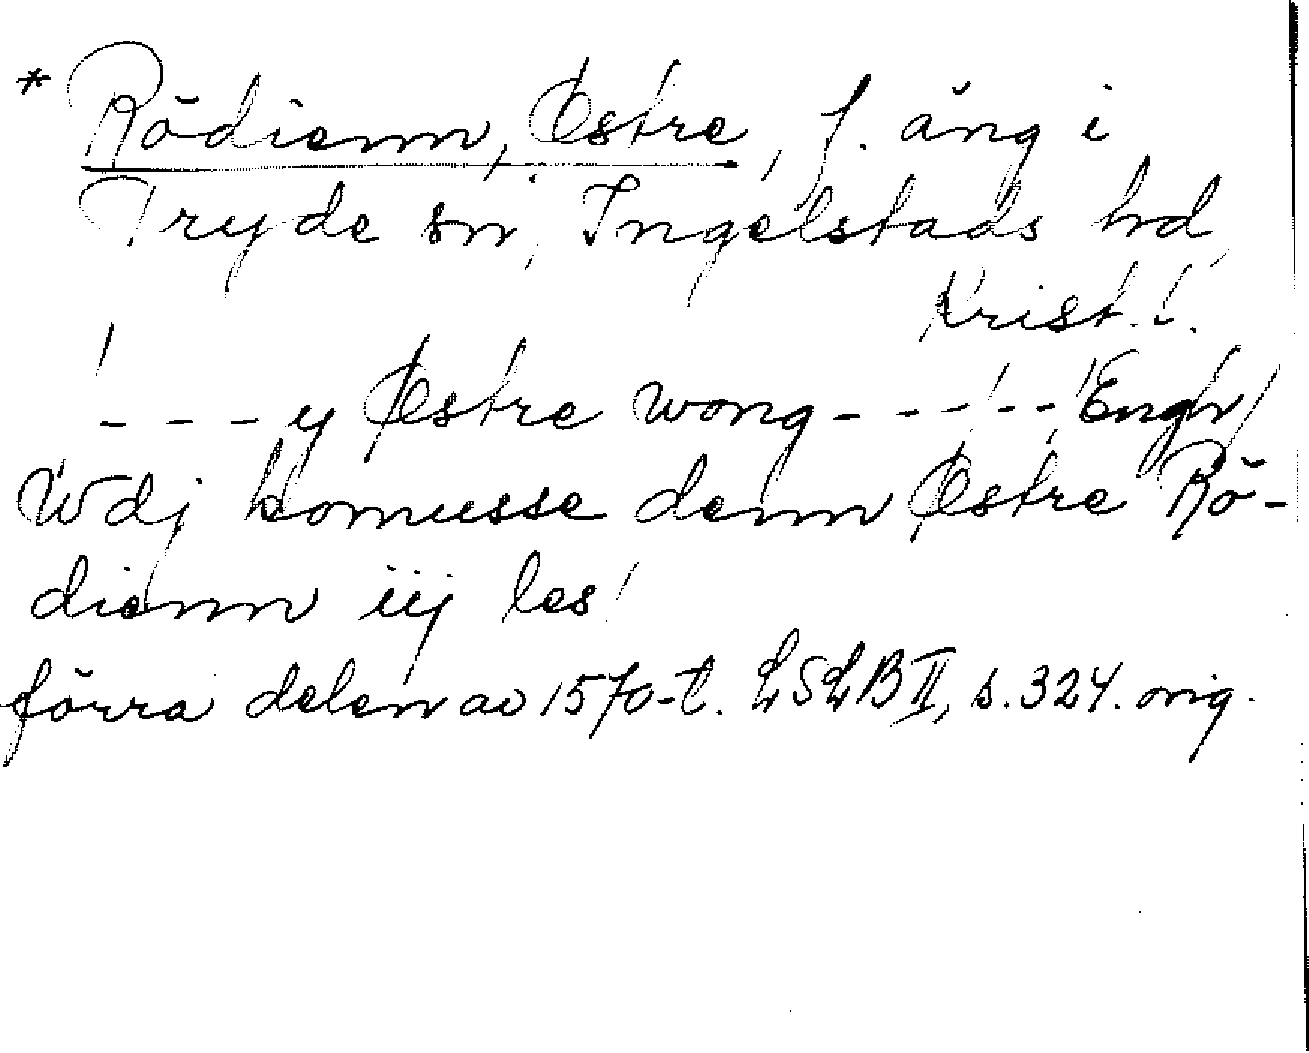 * Rödienn, Østre, f. äng i
Tryde sn, Ingelstads hd,
Krist. l.
/ - - - y Østre wong - - - / - - / Engh /
Wdj komusse denn Østre Rö-
dienn iij les /
förra delen av 1570-t. LSLB II, s. 324. orig.